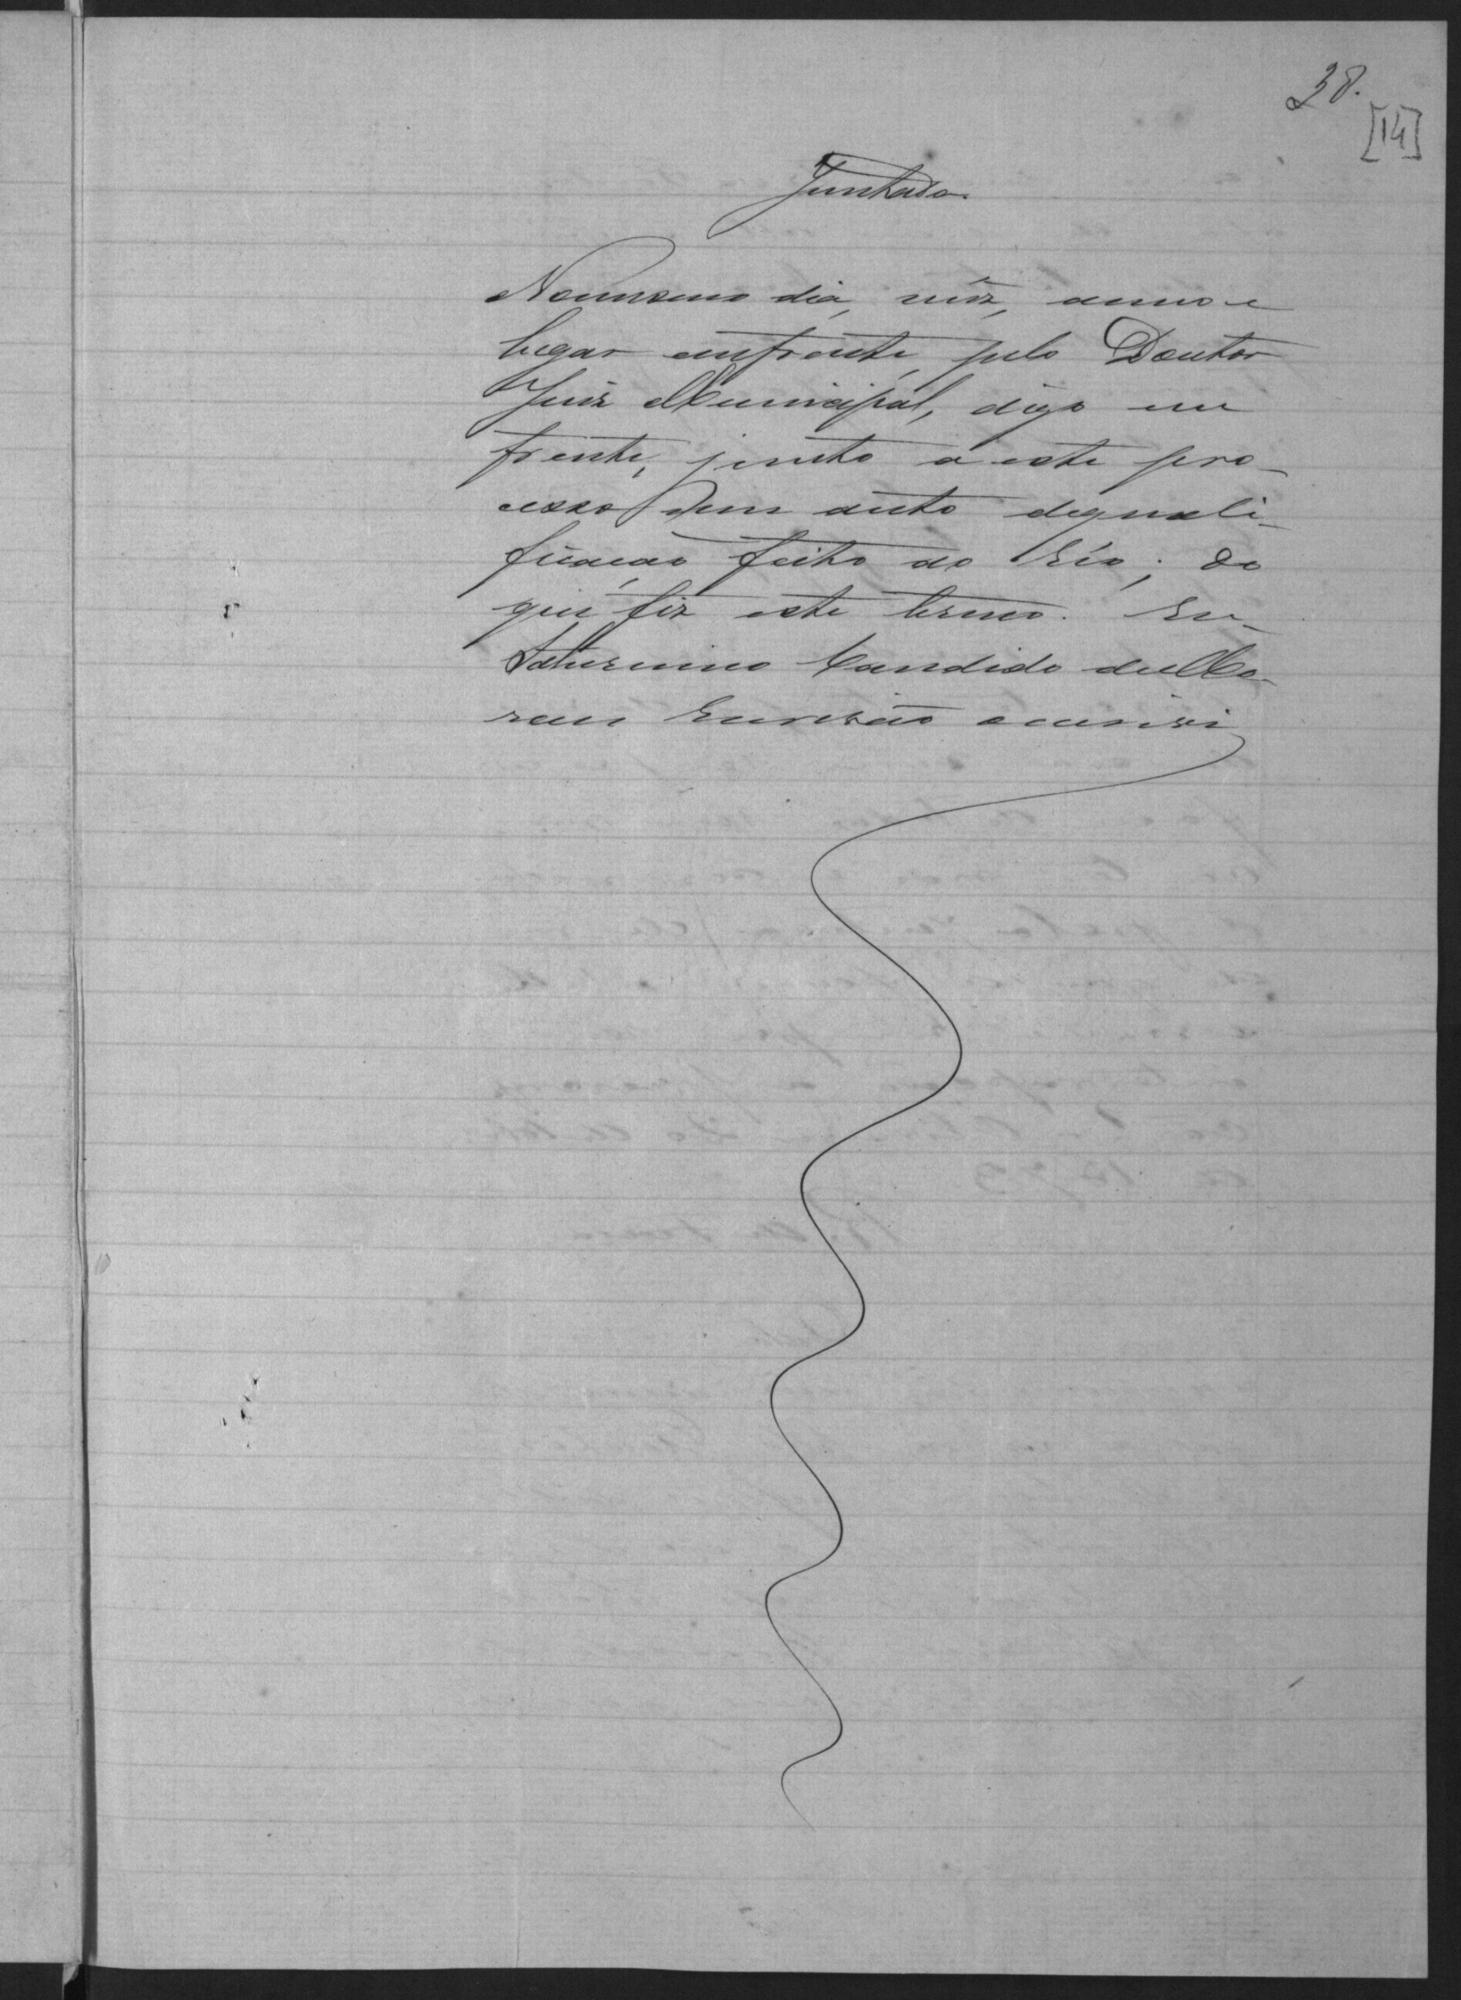 38.
[14]
Juntada.
No mesmo dia, mêz, anno e
lugar emfrente, pelo Doutor
Juiz Municipal, digo em
frente, junto a este pro-
cesso um auto dequali-
ficação feito ao réo; do
que fiz este termo. Eu
Saturnino Candido de Mo-
raes Escrivão escrevi